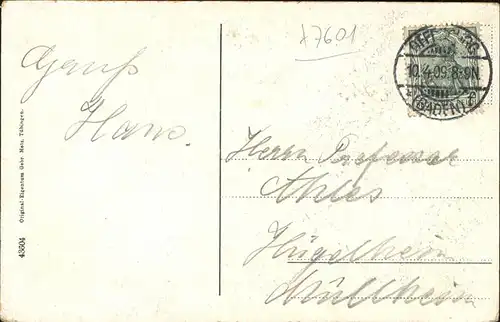 x7601
OFFENBURG
10.4.09.8-9N
(BADEN)
Gruß
Hans.
Herrn Professor
Ahles
Hügelheim
Müllheim
Original-Eigentum Gebr. Metz, Tübingen.
43604